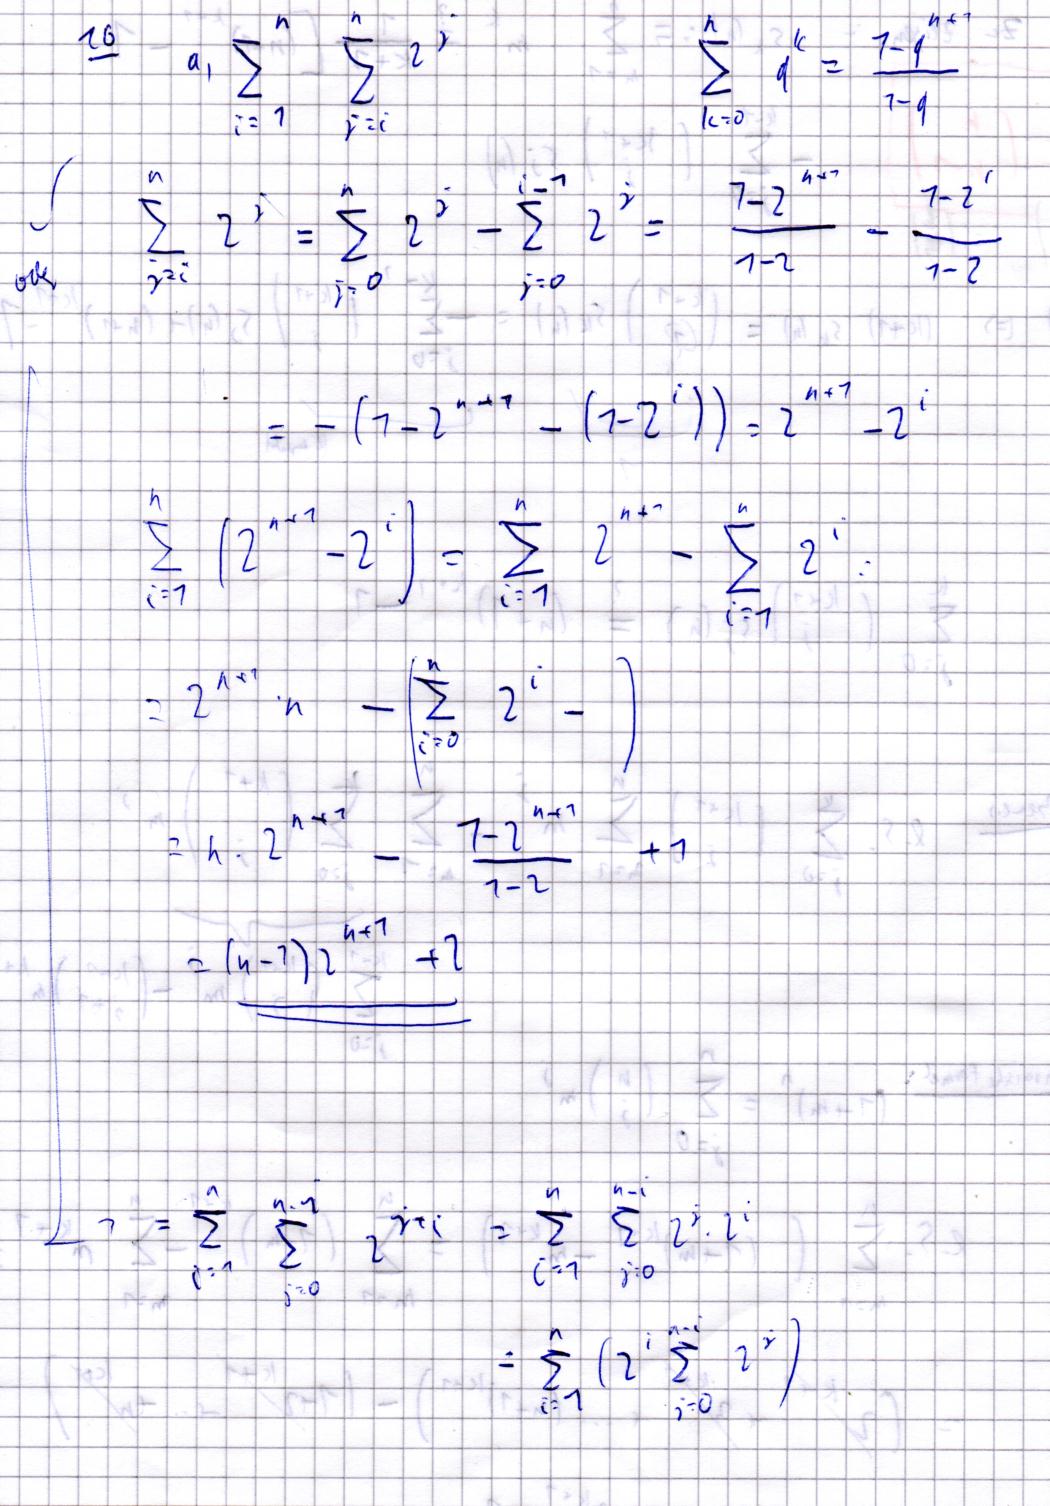 10 a, \sum_{i=1}^{n} \sum_{j=i}^{n} 2^j    \sum_{k=0}^{n} q^k = \frac{1-q^{n+1}}{1-q}
\sum_{j=i}^{n} 2^j = \sum_{j=0}^{n} 2^j - \sum_{j=0}^{i-1} 2^j = \frac{1-2^{n+1}}{1-2} - \frac{1-2^i}{1-2}
oder
= -(1-2^{n+1} - (1-2^i)) = 2^{n+1} - 2^i
\sum_{i=1}^{n} (2^{n+1} - 2^i) = \sum_{i=1}^{n} 2^{n+1} - \sum_{i=1}^{n} 2^i =
= 2^{n+1} · n - (\sum_{i=0}^{n} 2^i - )
= n · 2^{n+1} - \frac{1-2^{n+1}}{1-2} + 1
= (n-1) 2^{n+1} + 2
= \sum_{i=1}^{n} \sum_{j=0}^{n-i} 2^{j+i} = \sum_{i=1}^{n} \sum_{j=0}^{n-i} 2^j · 2^i
= \sum_{i=1}^{n} (2^i \sum_{j=0}^{n-i} 2^j)